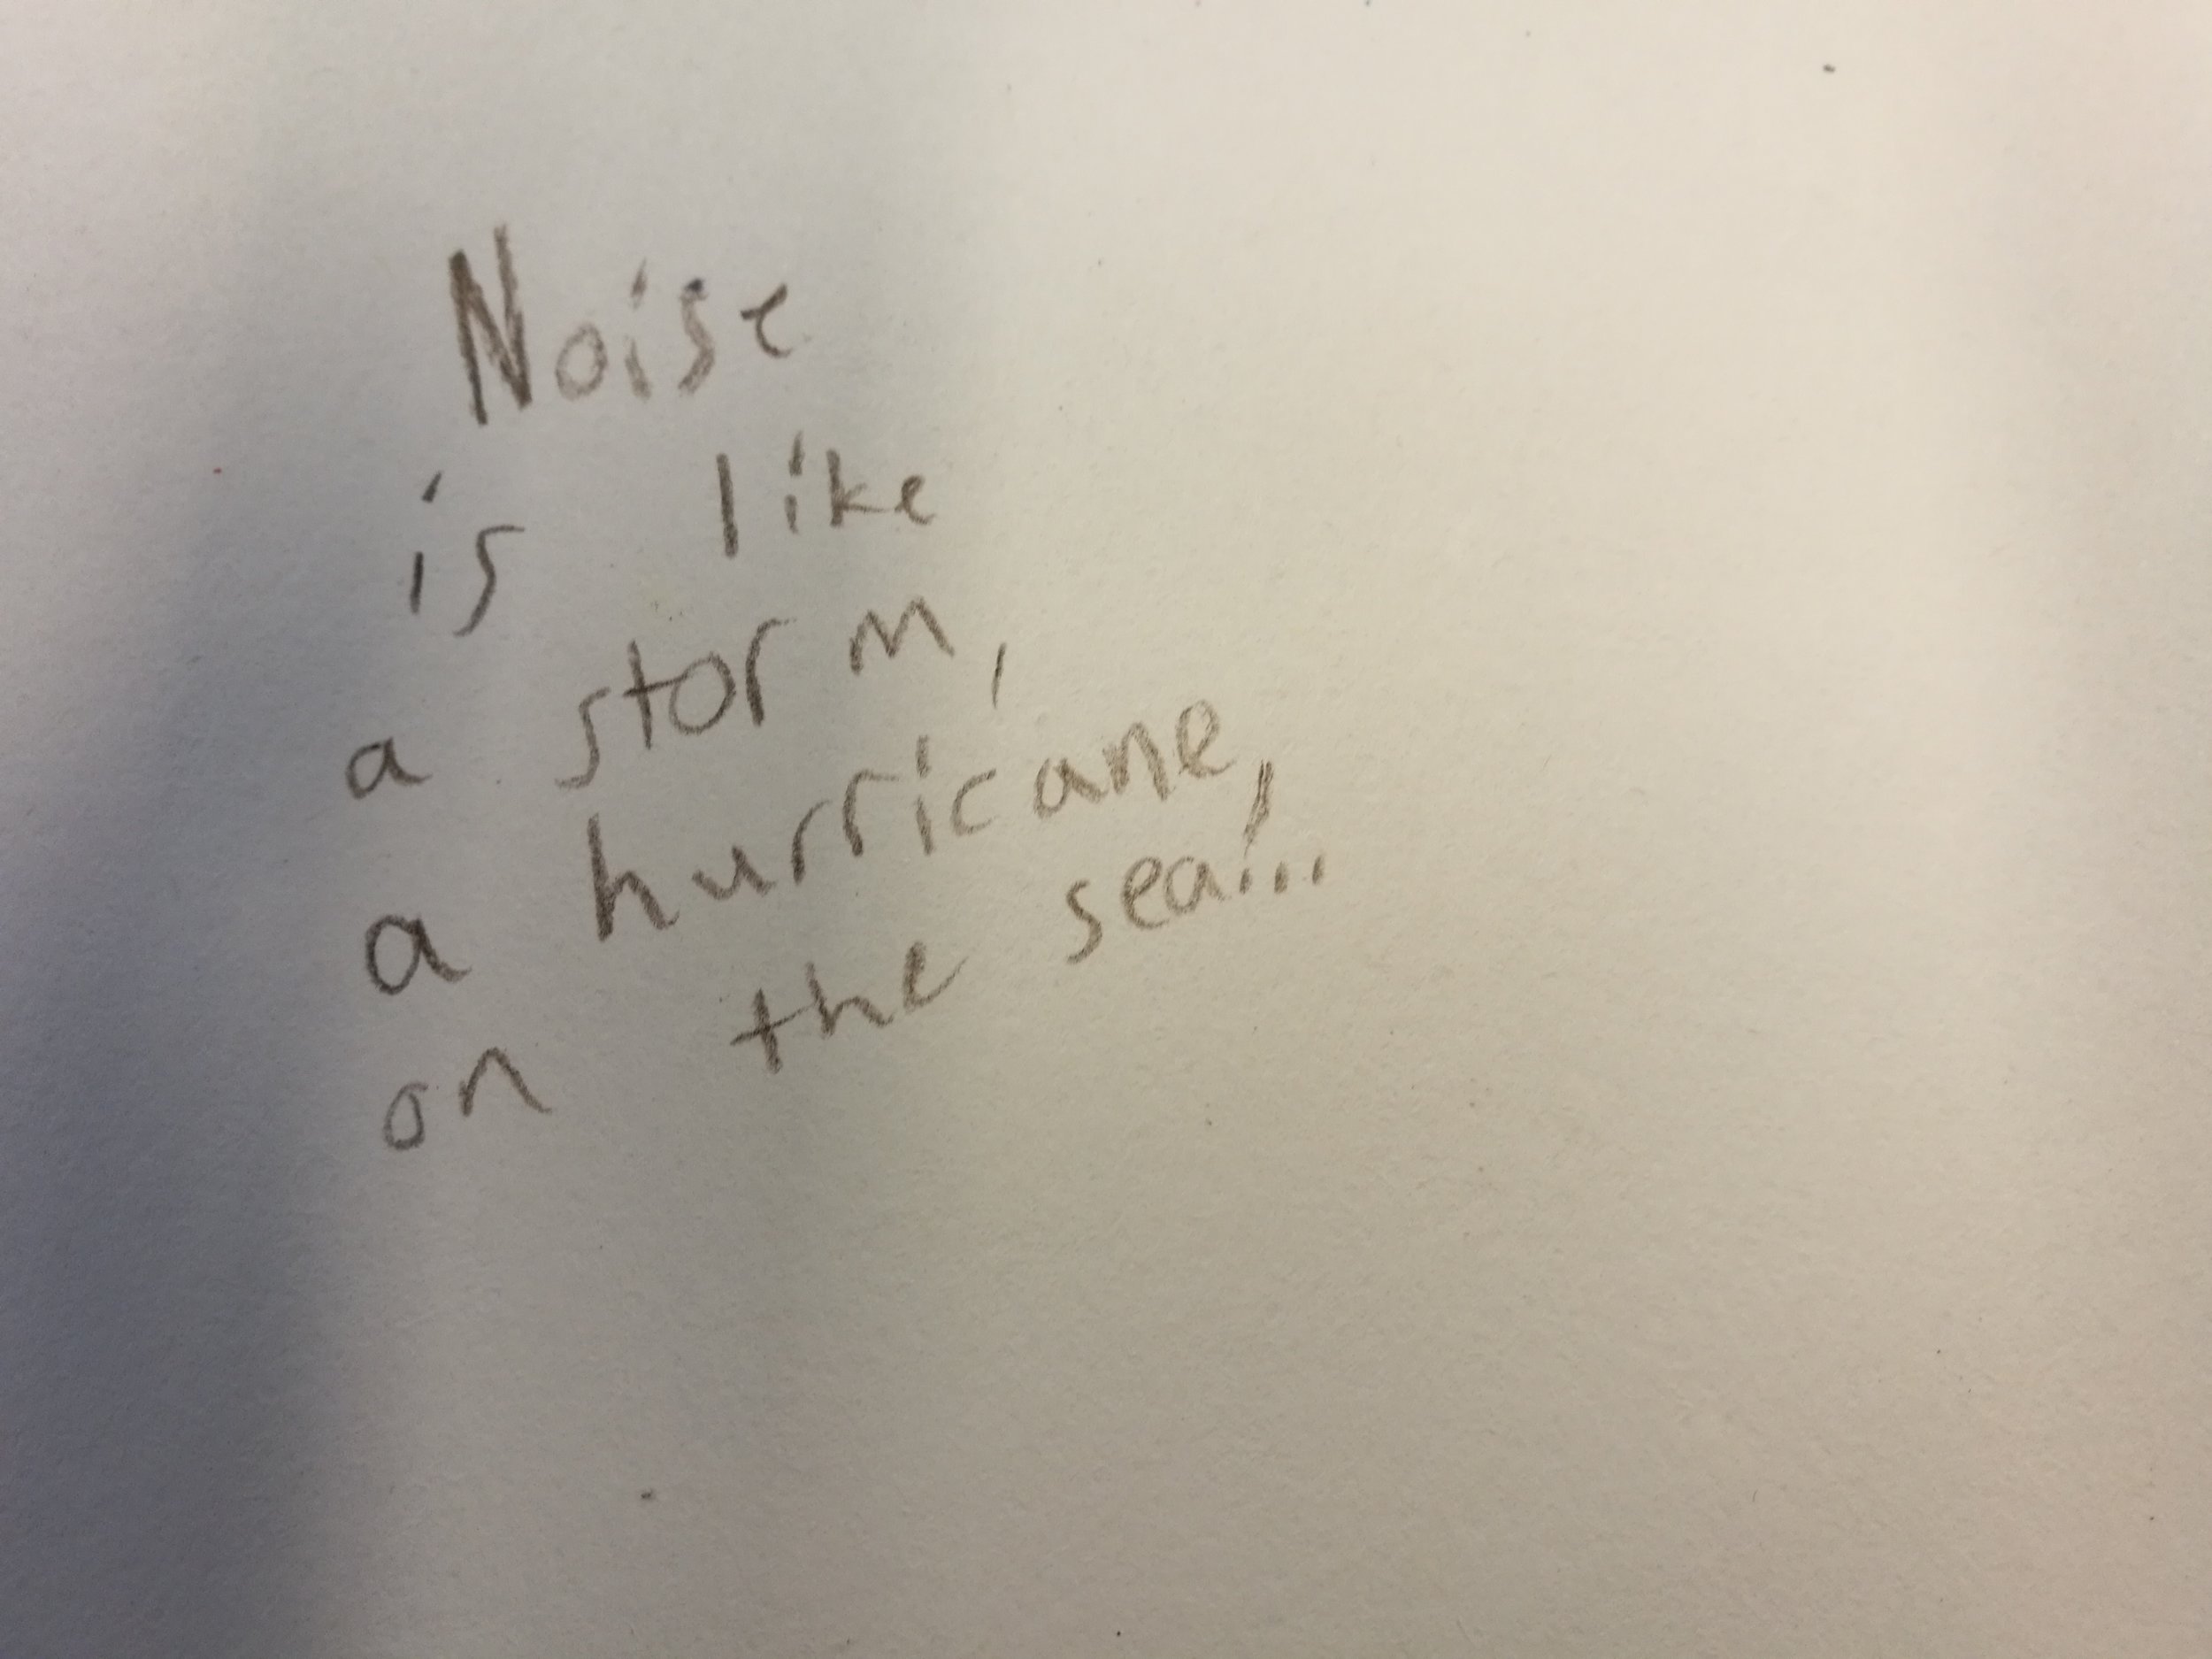 Noise
is like
a storm,
a hurricane,
on the sea...